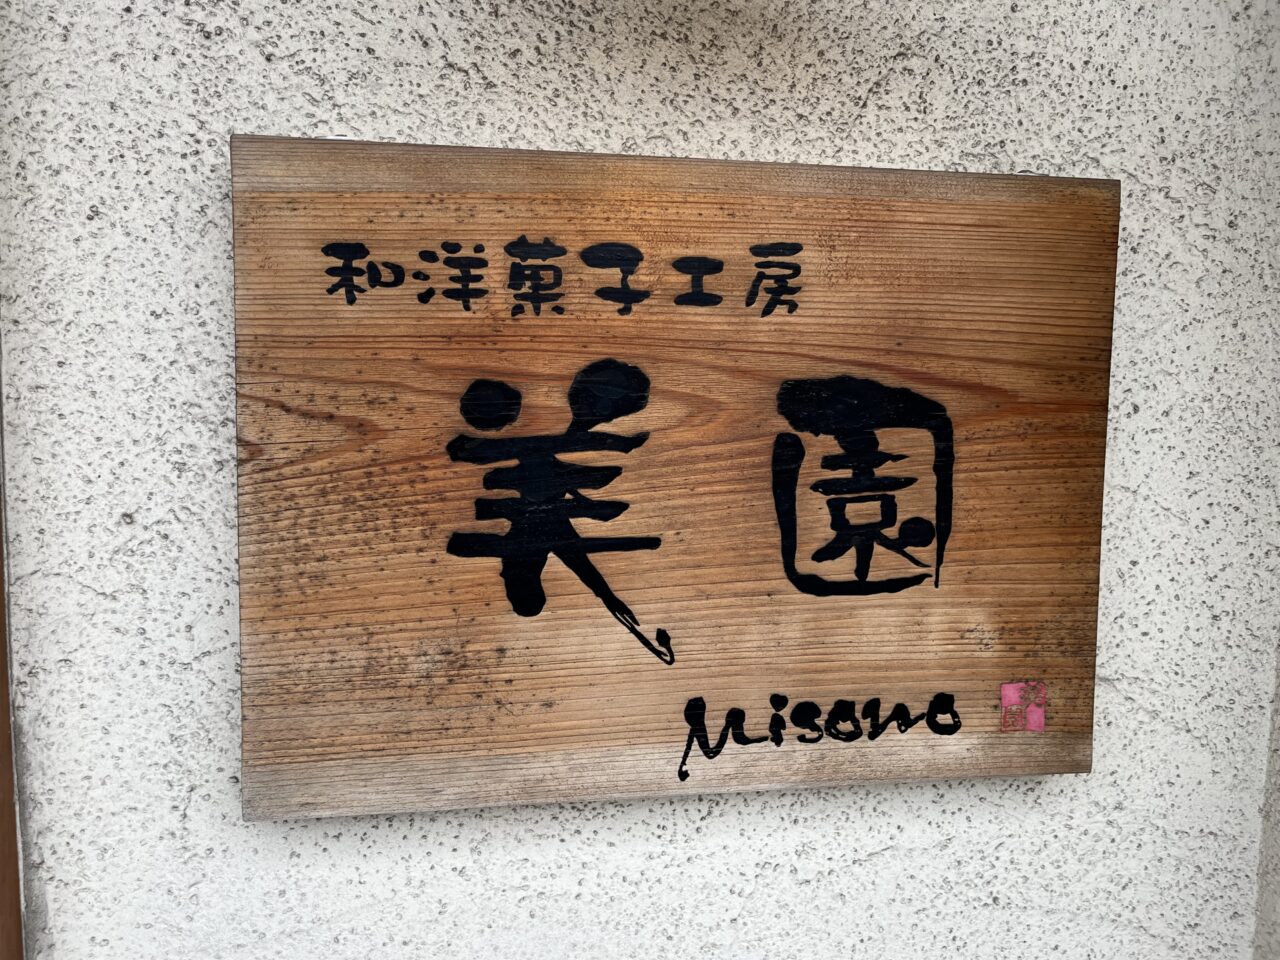 和洋菓子工房
美園
Misono